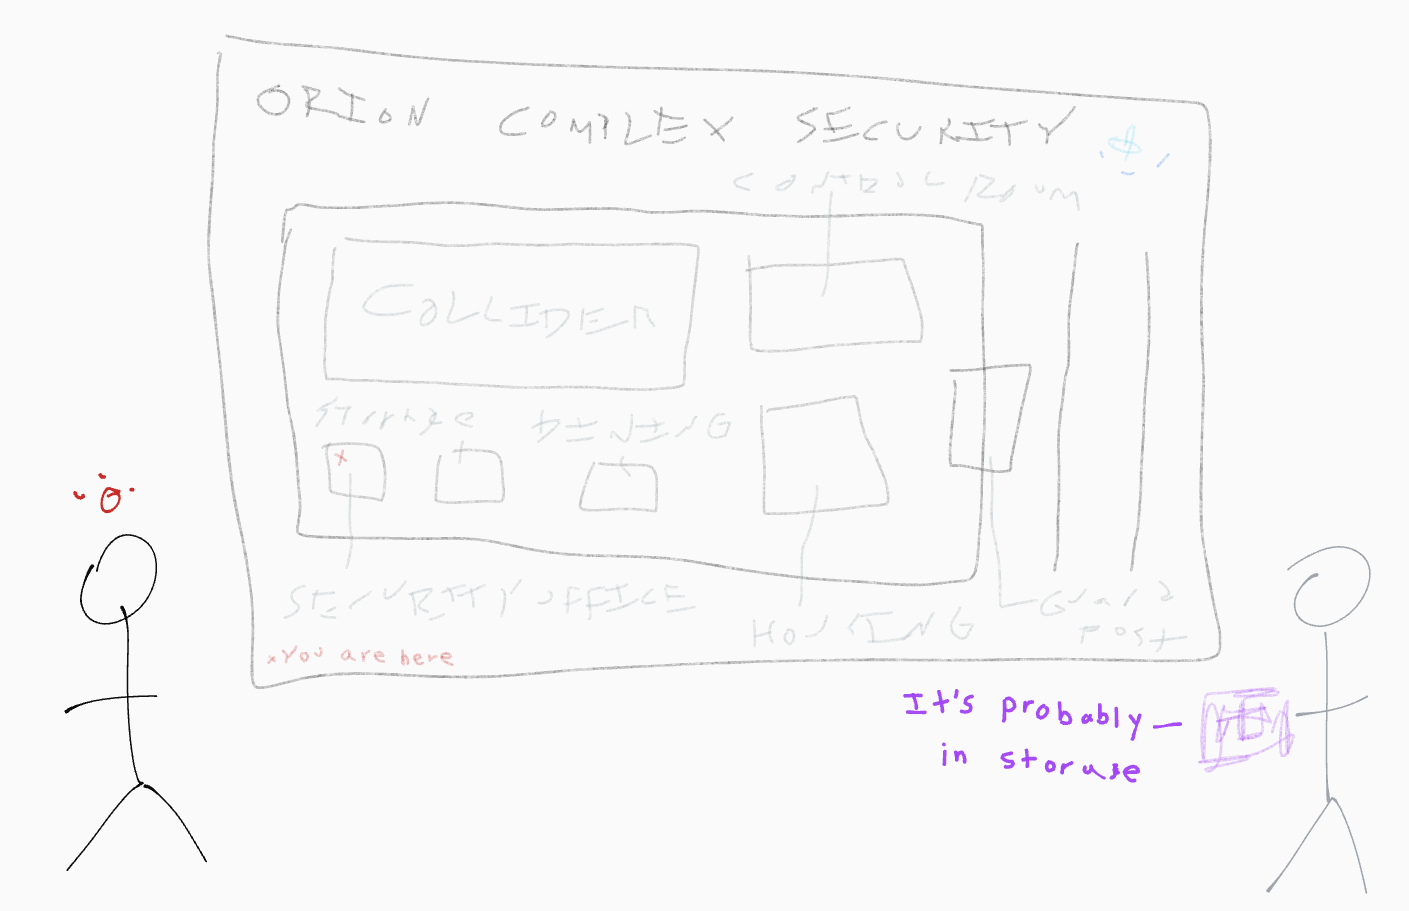 ORION COMPLEX SECURITY
CONTROL ROOM
COLLIDER
Storage
DINING
x
SECURITY OFFICE
HOUSING
Guard
Post
xYou are here
It's probably—
in storage